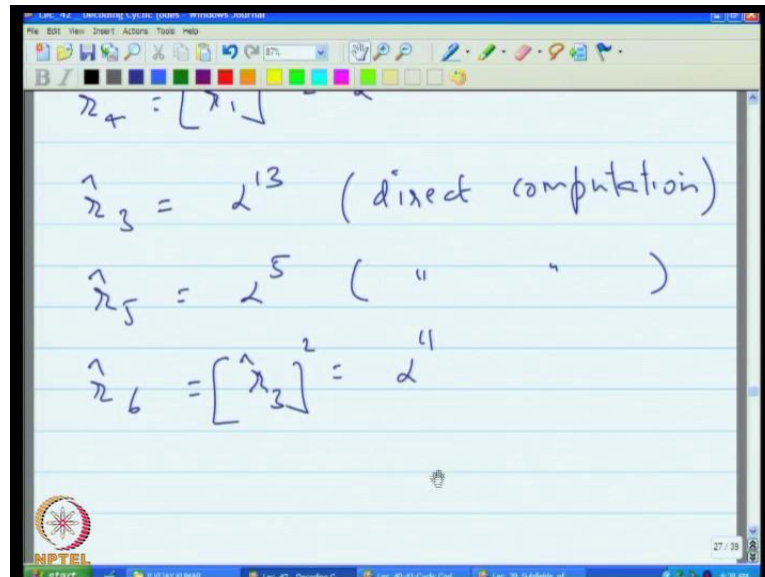 Lec_42 _ Decoding Cyclic Codes - Windows Journal
File Edit View Insert Actions Tools Help
87%
B I
r̂₄ = [r̂₁]
r̂₃ = α¹³ (direct computation)
r̂₅ = α⁵ ( " " )
r̂₆ = [r̂₃]² = α¹¹
27 / 39
NPTEL
start